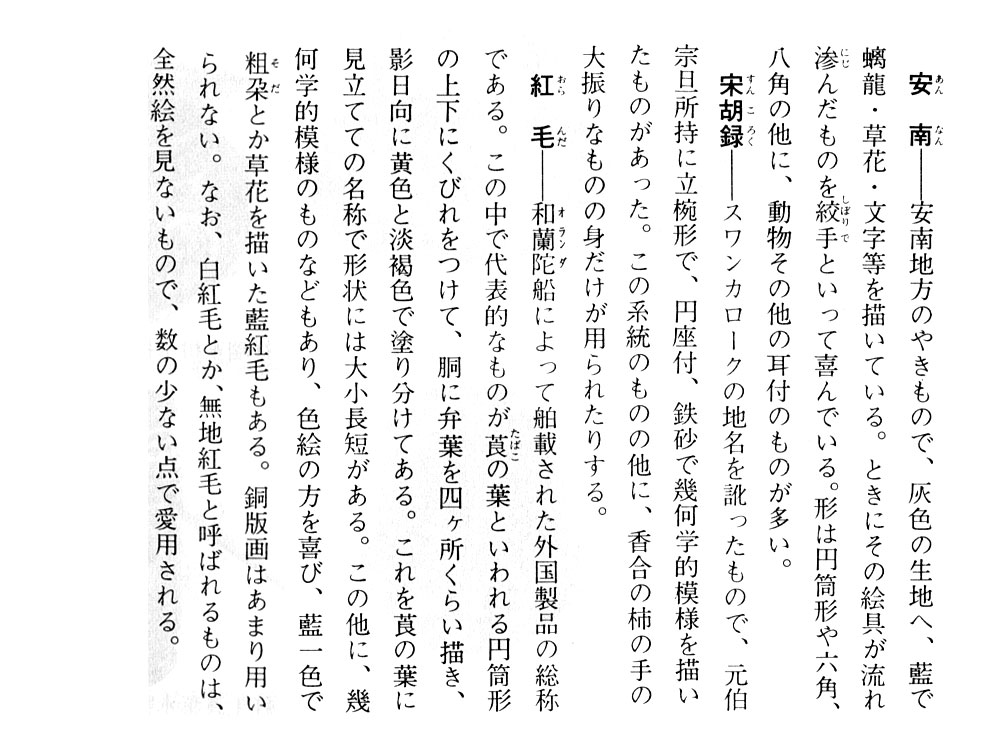 安南――安南地方のやきもので、灰色の生地へ、藍で
螭龍・草花・文字等を描いている。ときにその絵具が流れ
滲んだものを絞手といって喜んでいる。形は円筒形や六角、
八角の他に、動物その他の耳付のものが多い。
宋胡録――スワンカロークの地名を訛ったもので、元伯
宗旦所持に立椀形で、円座付、鉄砂で幾何学的模様を描い
たものがあった。この系統のものの他に、香合の柿の手の
大振りなものの身だけが用られたりする。
紅毛――和蘭陀船によって舶載された外国製品の総称
である。この中で代表的なものが莨の葉といわれる円筒形
の上下にくびれをつけて、胴に弁葉を四ヶ所くらい描き、
影日向に黄色と淡褐色で塗り分けてある。これを莨の葉に
見立てての名称で形状には大小長短がある。この他に、幾
何学的模様のものなどもあり、色絵の方を喜び、藍一色で
粗朶とか草花を描いた藍紅毛もある。銅版画はあまり用い
られない。なお、白紅毛とか、無地紅毛と呼ばれるものは、
全然絵を見ないもので、数の少ない点で愛用される。